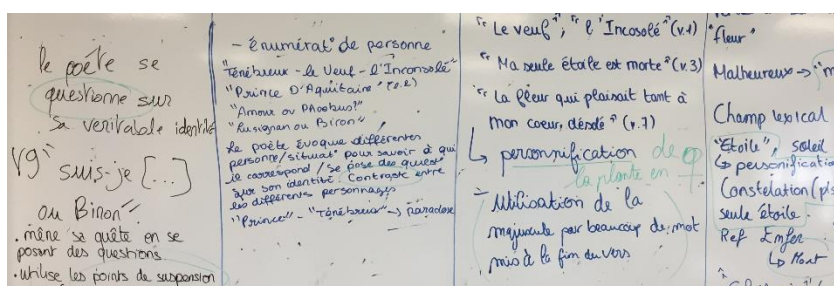 le poète se
questionne sur
sa veritabale identité
v9 "suis-je [...]
ou Biron".
. mène sa quête en se
posant des questions.
. utilise les points de suspension
- énumérat° de personne
"Ténébreux - le Veuf - l'Inconsolé"
"Prince D'Aquitaine" (v.2)
"Amour ou Phoebus?"
"Lusignan ou Biron"
Le poète évoque différentes
personne/situat° pour savoir à qui
il correspond / se pose des quest°
sur son identité. Contraste entre
les différents personnages
"Prince" - "Ténébreux" -> paradoxe
"Le veuf", "l'Incosolé" (v.1)
"Ma seule étoile est morte" (v.3)
"La fleur qui plaisait tant à
mon coeur, désolé" (v.7)
↳ personnification de
la plante en ♀
- Utilisation de la
majuscule pour beaucoup de mot
mis à la fin du vers
"fleur"
Malheureux -> "m
Champ lexical
"Etoile", soleil
↳ personificatio
Constelation (pls
seule étoile.
Ref Enfer
↳ Mort